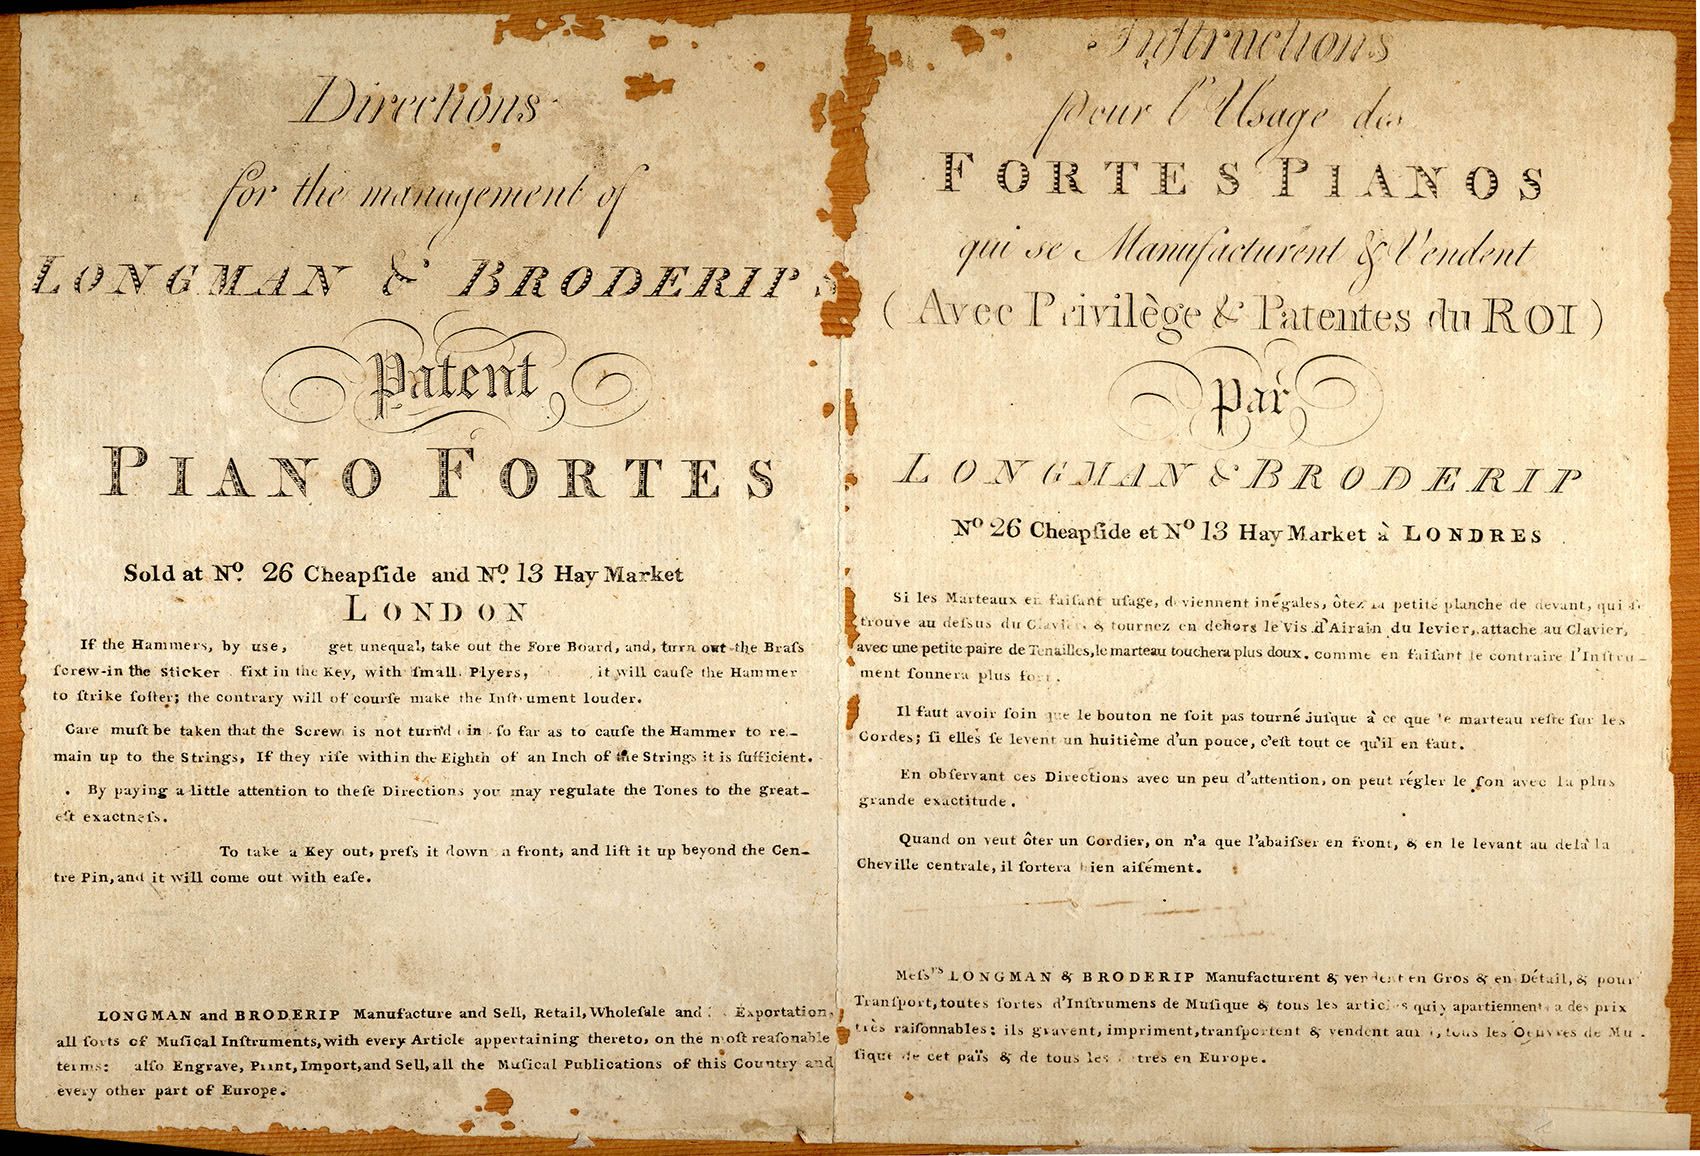 Directions
for the management of
LONGMAN & BRODERIP'S
Patent
PIANO FORTES
Sold at No. 26 Cheapſide and No. 13 Hay Market
LONDON
If the Hammers, by use, get unequal, take out the Fore Board, and, turn out the Braſs
ſcrew-in the Sticker fixt in the Key, with ſmall Plyers, it will cauſe the Hammer
to ſtrike ſofter; the contrary will of courſe make the Inſtrument louder.
Care muſt be taken that the Screw is not turn'd in ſo far as to cauſe the Hammer to re-
main up to the Strings, If they riſe within the Eighth of an Inch of the Strings it is ſufficient.
By paying a little attention to theſe Directions you may regulate the Tones to the great-
eſt exactneſs.
To take a Key out, preſs it down in front, and lift it up beyond the Cen-
tre Pin, and it will come out with eaſe.
LONGMAN and BRODERIP Manufacture and Sell, Retail, Wholeſale and Exportation,
all ſorts of Muſical Inſtruments, with every Article appertaining thereto, on the moſt reaſonable
terms: alſo Engrave, Print, Import, and Sell, all the Muſical Publications of this Country and
every other part of Europe.
Inſtructions
pour l'Usage des
FORTES PIANOS
qui se Manufacturent & Vendent
(Avec Privilège & Patentes du ROI)
par
LONGMAN & BRODERIP
No 26 Cheapſide et No 13 Hay Market à LONDRES
Si les Marteaux en faiſant uſage, deviennent inégales, ôtez la petite planche de devant, qui ſe
trouve au deſsus du Clavier, & tournez en dehors le Vis d'Airain du levier, attache au Clavier,
avec une petite paire de Tenailles, le marteau touchera plus doux. comme en faiſant le contraire l'Inſtru-
ment ſonnera plus fort.
Il faut avoir ſoin que le bouton ne ſoit pas tourné juſque à ce que le marteau reſte ſur les
Cordes; ſi elles ſe levent un huitième d'un pouce, c'eſt tout ce qu'il en faut.
En obſervant ces Directions avec un peu d'attention, on peut régler le ſon avec la plus
grande exactitude.
Quand on veut ôter un Cordier, on n'a que l'abaiſser en front, & en le levant au delà la
Cheville centrale, il ſortera bien aiſément.
Meſsrs LONGMAN & BRODERIP Manufacturent & vendent en Gros & en Détail, & pour
Tranſport, toutes ſortes d'Inſtrumens de Muſique & tous les articles qui y apartiennent a des prix
très raiſonnables: ils gravent, impriment, tranſportent & vendent auſ tous les Oeuvres de Mu-
ſique de cet païs & de tous les autres en Europe.